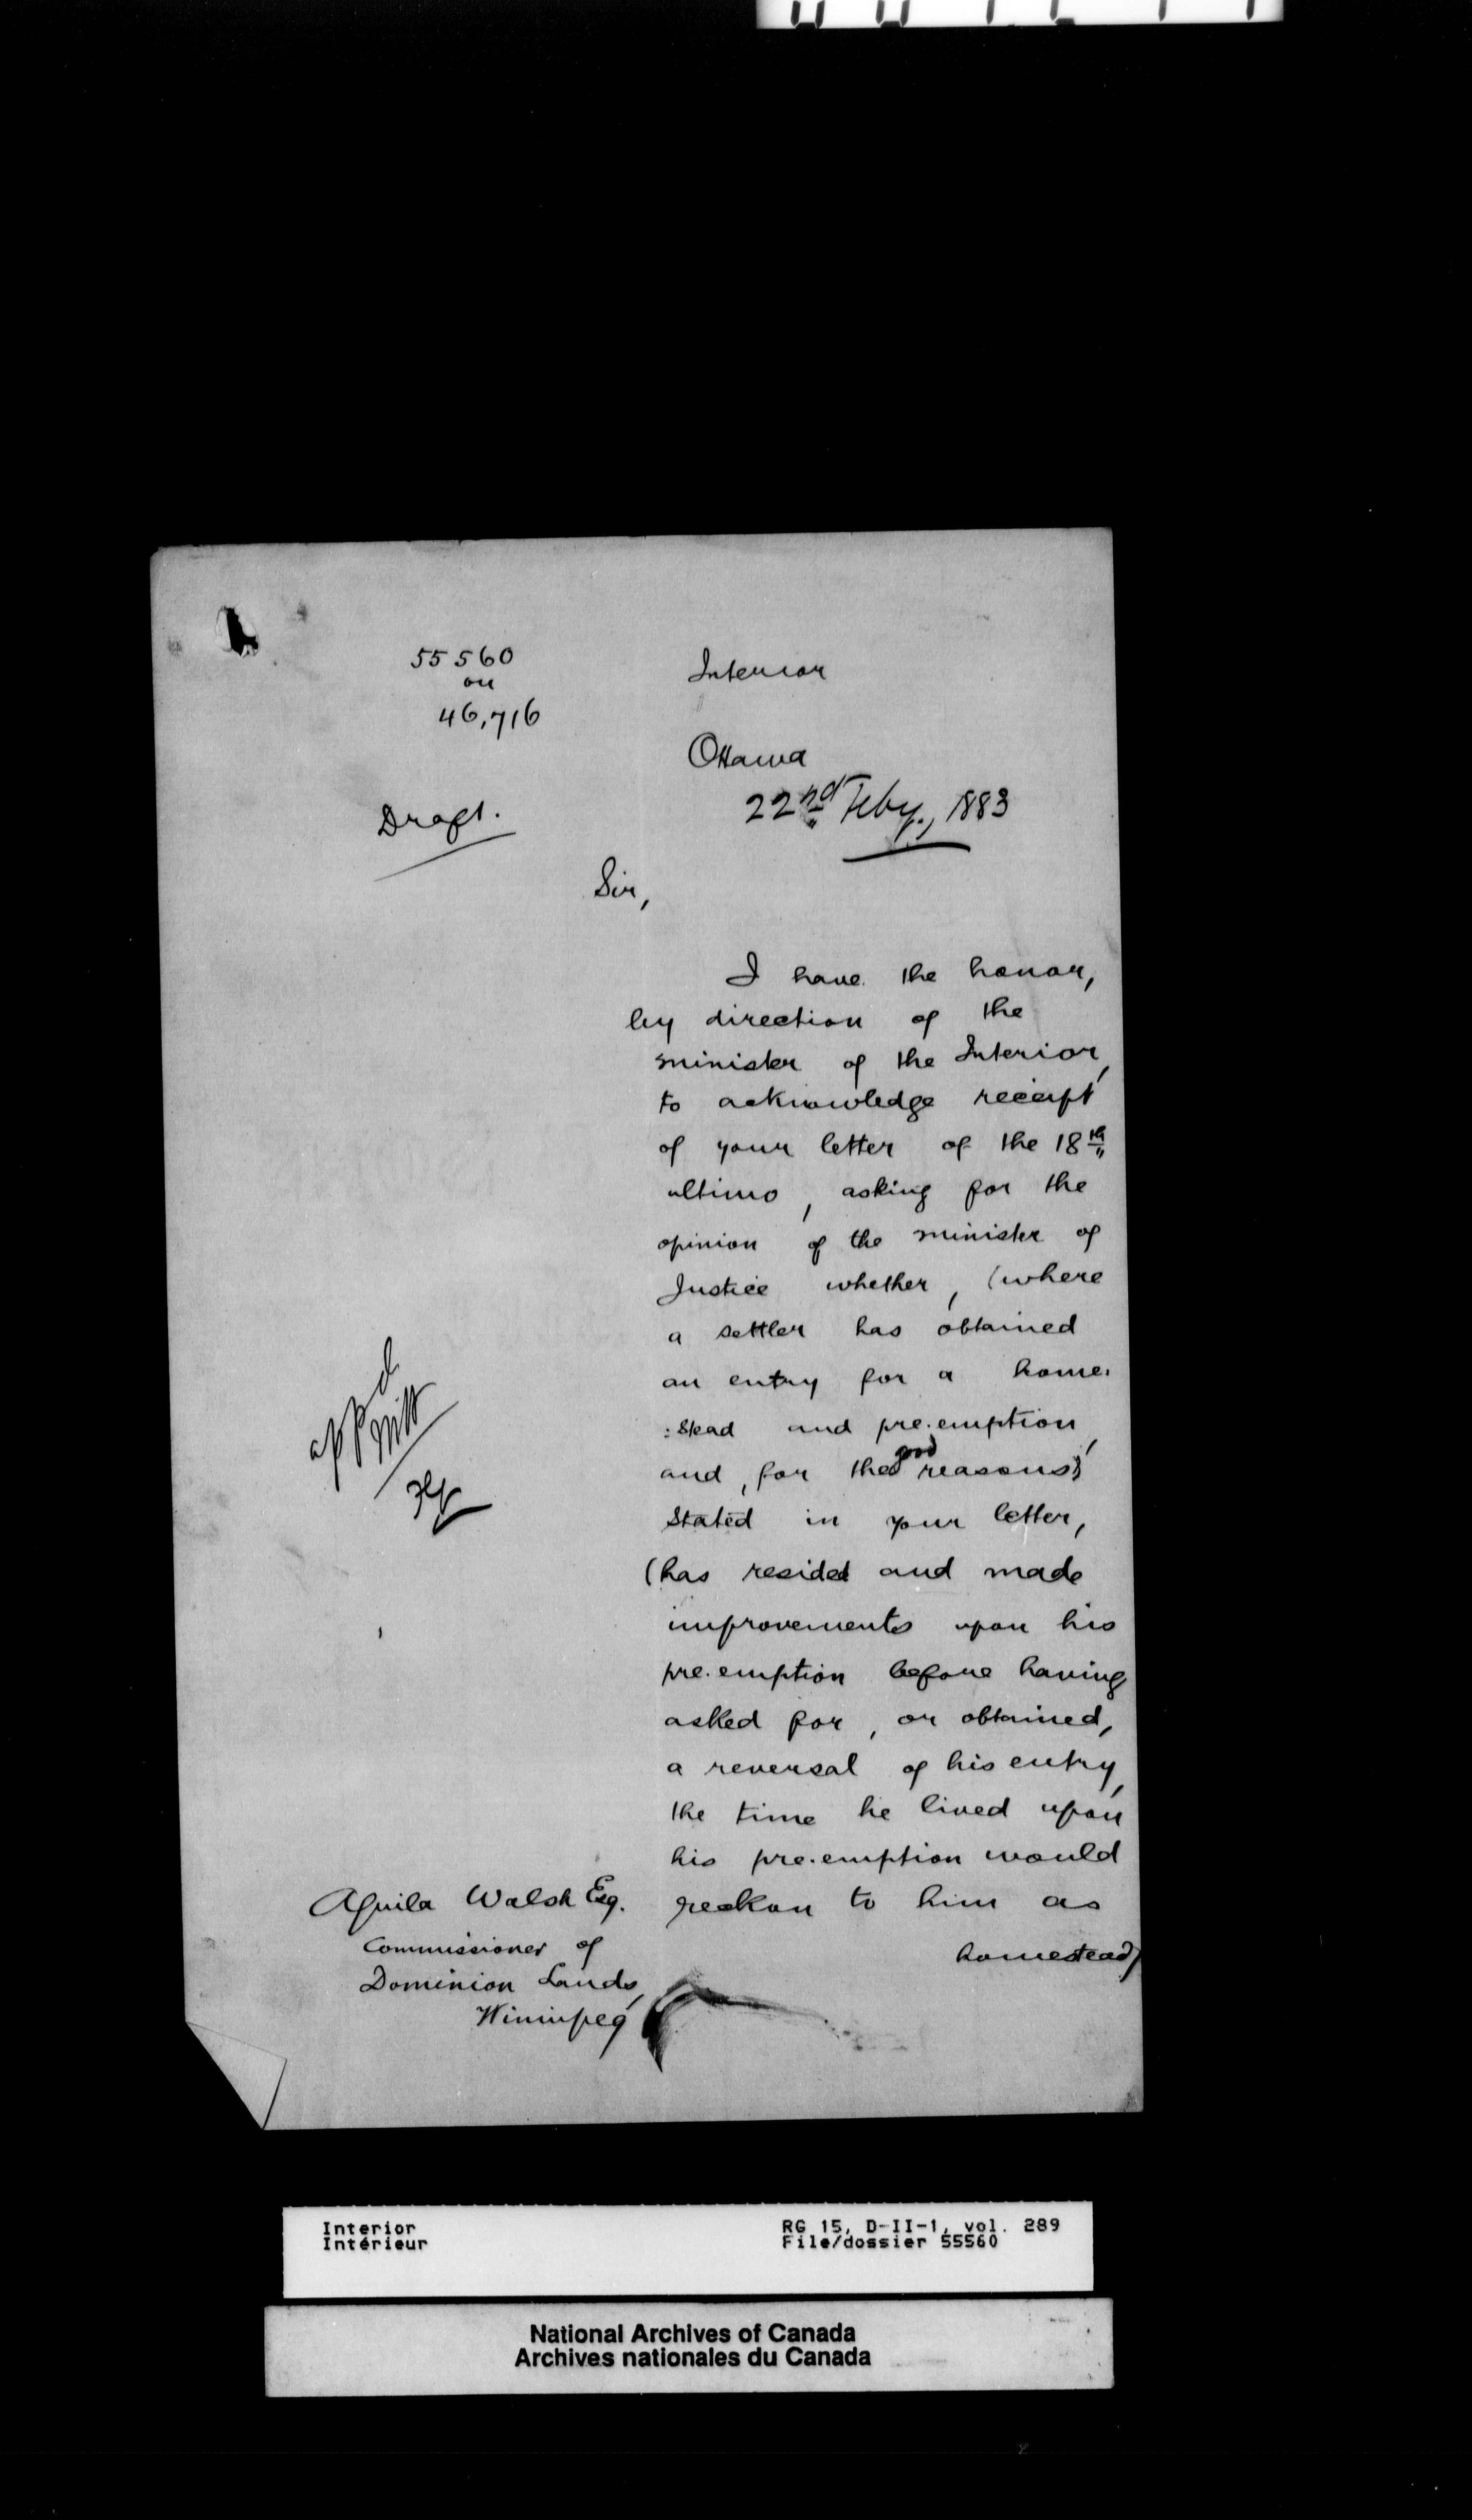 55560
on
46,716
Draft.
Interior
Ottawa
22nd Feby., 1883
Sir,
I have the honor,
by direction of the
minister of the Interior,
to acknowledge receipt
of your letter of the 18th
ultimo, asking for the
opinion of the minister of
Justice whether, (where
a settler has obtained
an entry for a home:
:stead and pre-emption,
and, for the good reasons)
stated in your letter,
(has resided and made
improvements upon his
pre-emption before having
asked for, or obtained,
a reversal of his entry,
the time he lived upon
his pre-emption would
reckon to him as
homestead)
appd
Aquila Walsh Esq.
Commissioner of
Dominion Lands,
Winnipeg
Interior
Intérieur
RG 15, D-II-1, vol. 289
File/dossier 55560
National Archives of Canada
Archives nationales du Canada